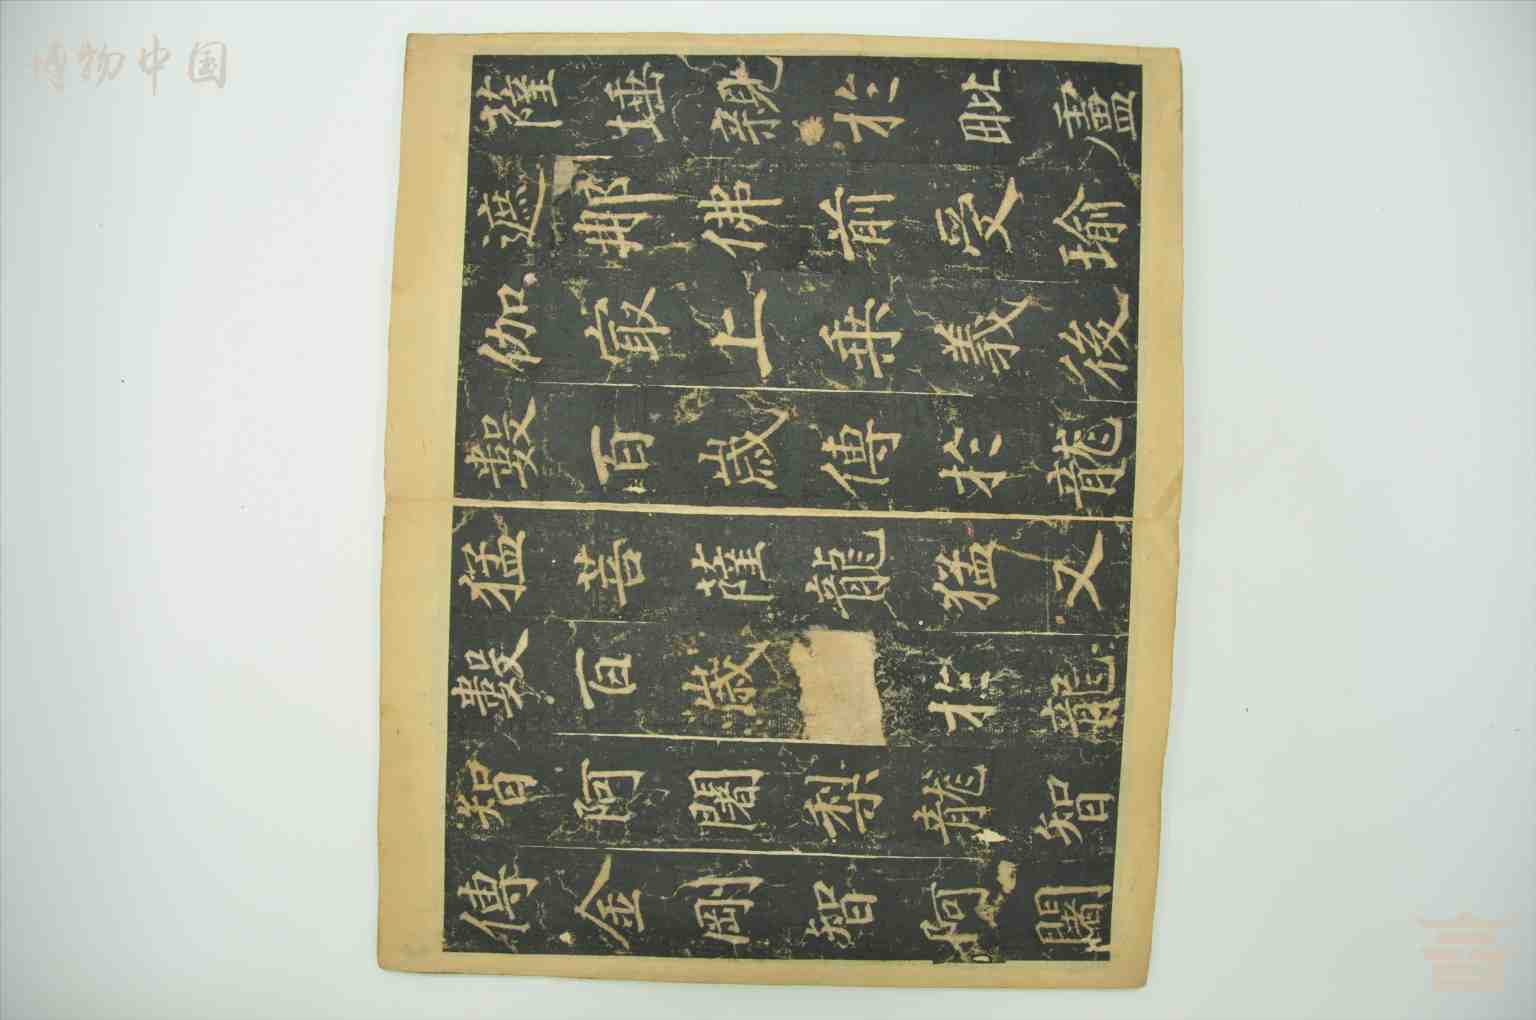 薩埵親於毗盧
遮那佛前受瑜
伽最上乗義後
數百歲傳於龍
猛菩薩龍猛又
數百歲於龍
智阿闍梨龍智
傳金剛智阿闍
博物中国